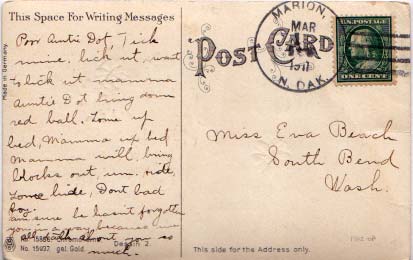 This Space For Writing Messages
Poor Auntie Dot, Tick
mine, lick it, want
to lick it mamma
Auntie Dot bring down
red ball. Come up
bed, Mamma up bed
Mamma will bring
blocks out, um. ride,
come hide, Dont bad
boy.
am sure he hasn't forgotten
you away because we
all talk about you so
much.
No. 15
No. 15937. gel. Gold.
Dessin 2.
Made in Germany.
POST CARD
MARION,
MAR
1911
N. DAK.
U.S. POSTAGE
ONE CENT
Miss Eva Beach
South Bend
Wash.
This side for the Address only.